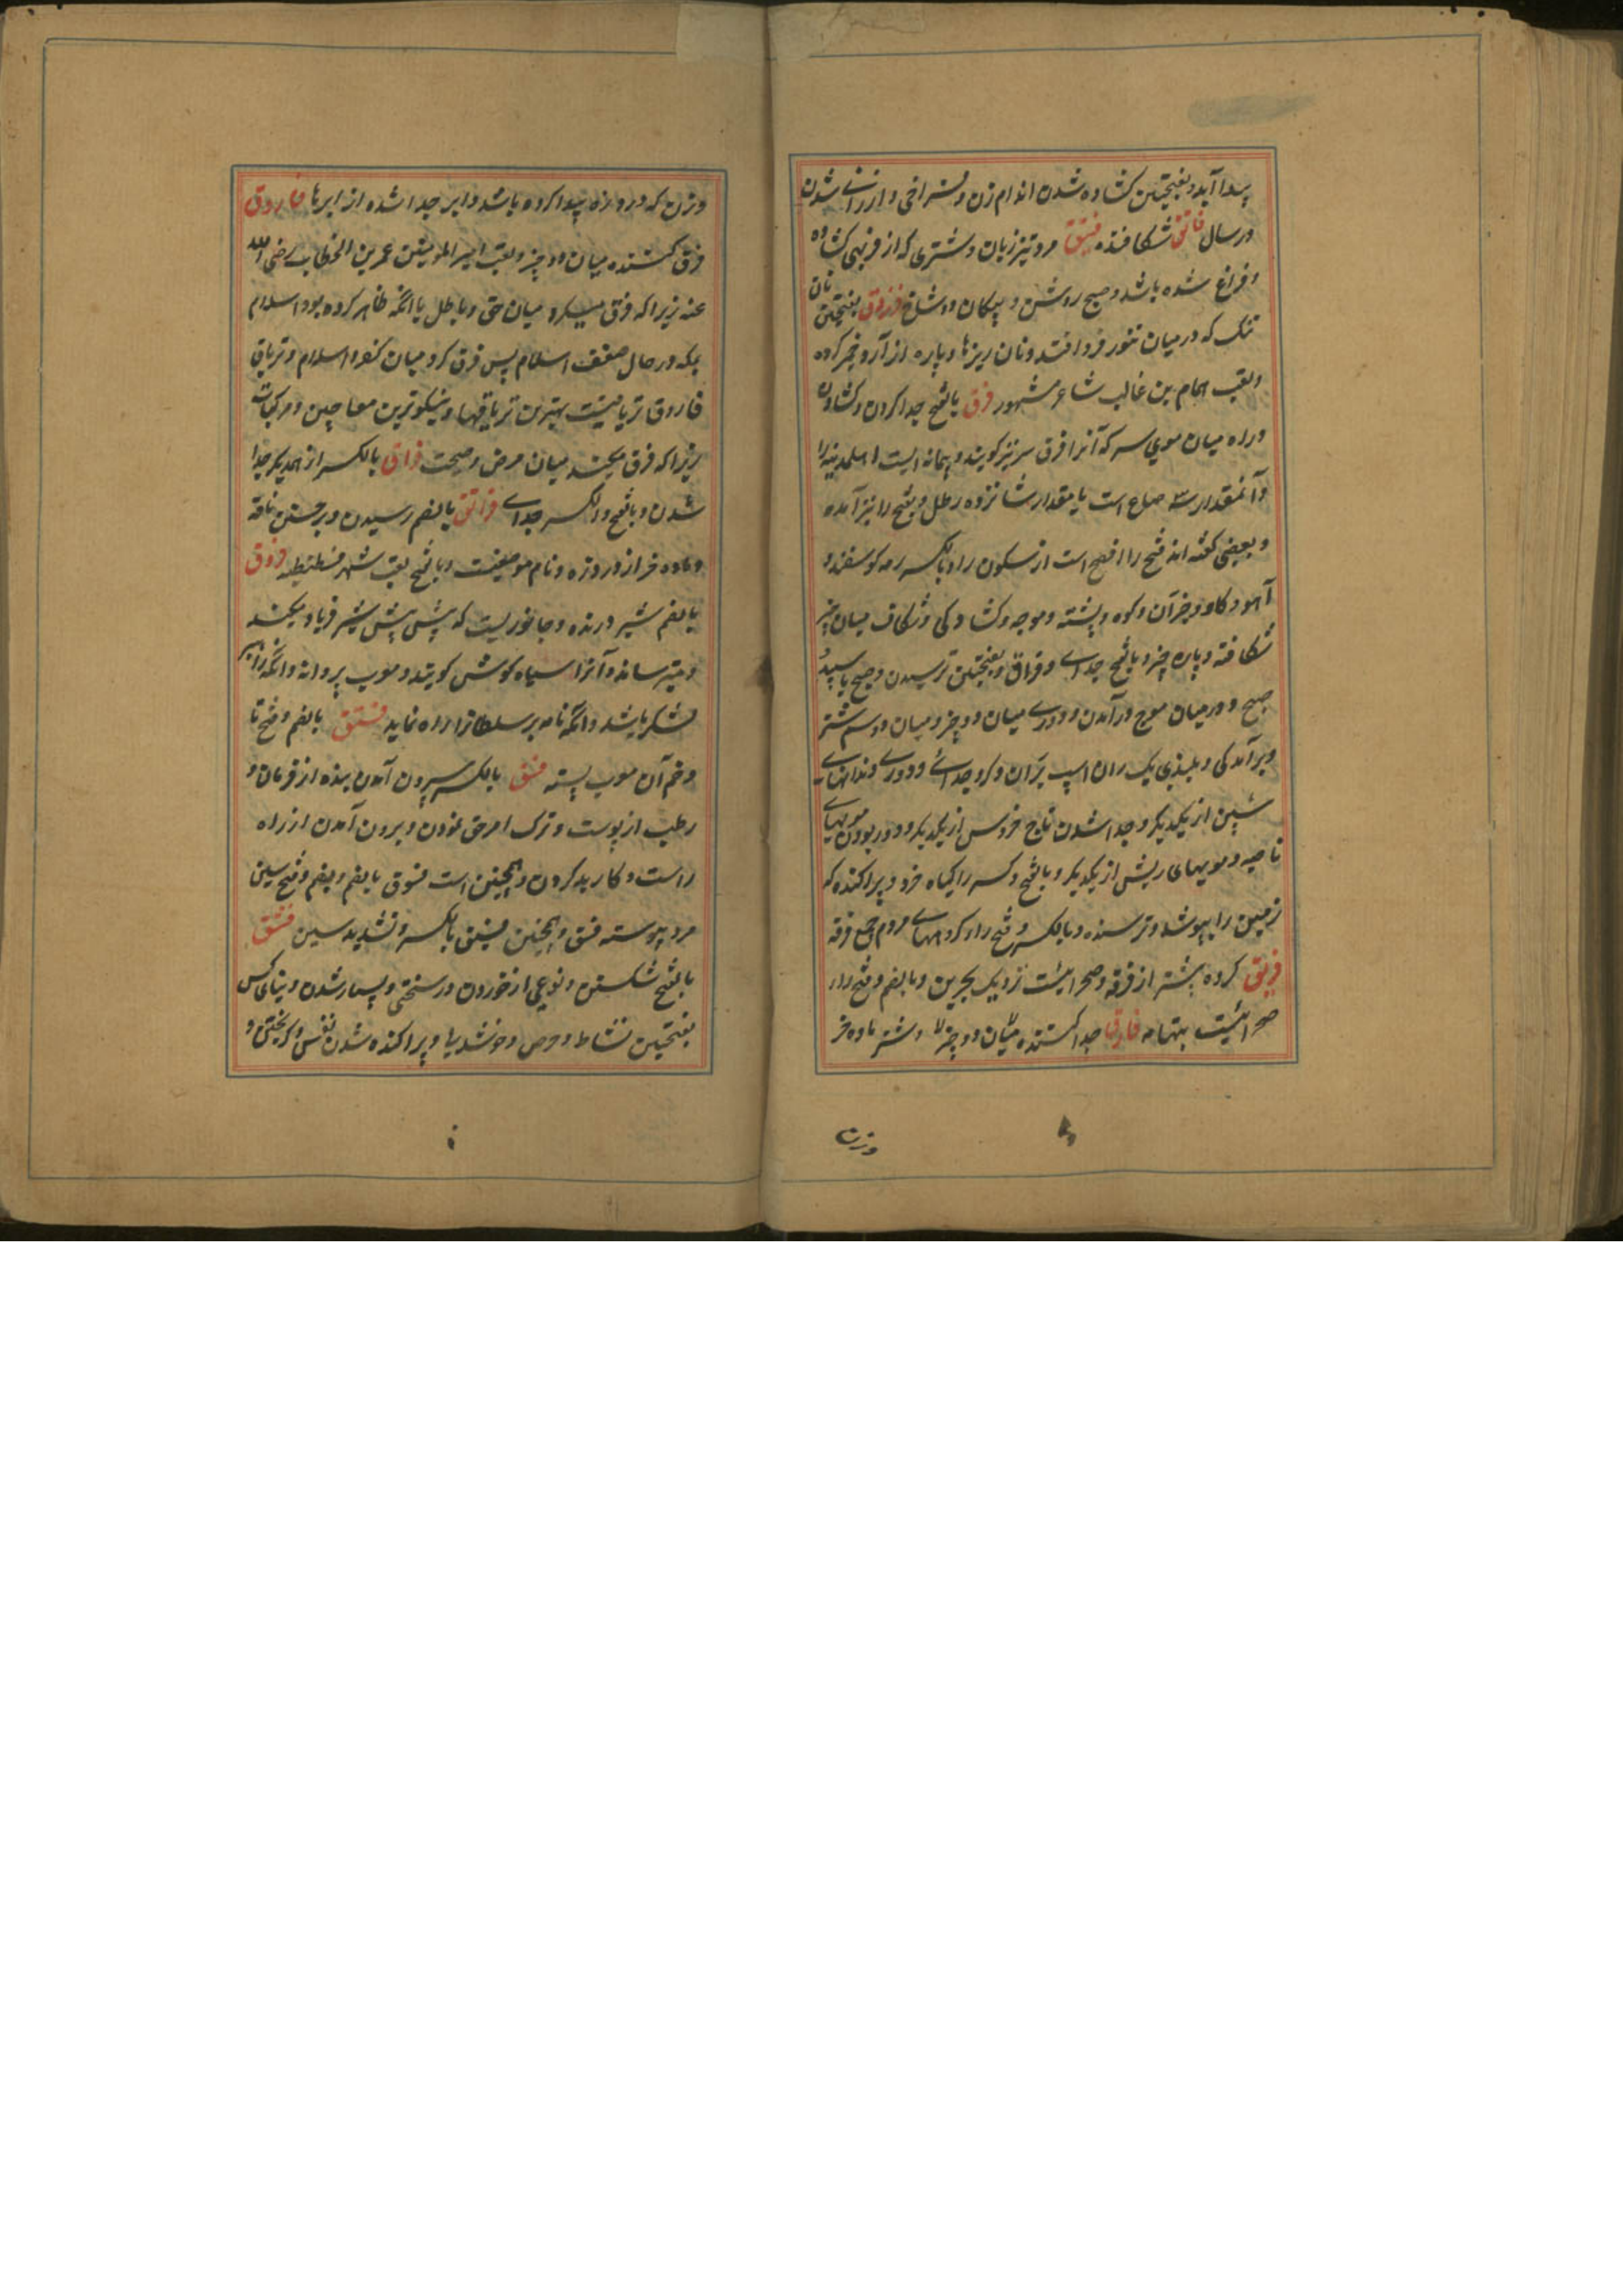 پیدا آید و بفتحتین کشاده شدن اندام زن و فراخی و ارزانی شدن
در سال فاتق شکافنده فیتق مرد تیز زبان و شتری که از فربهی کشاده
و فراخ شده باشد و صبح روشن و پیکان دو شاخ فرزدق بفتحتین نان
تنک که در میان تنور فرو افتد و نان ریزها و پاره از آرد خمیر کرده
و لقب همام بن غالب شاعر مشهور فرق بالفتح جدا کردن و کشادن
و راه میان موی سر که آنرا فرق سر نیز کویند و پیمانه ایست اهلمدینه را
و آنمقدار سه صاع است یا مقدار شانزده رطل و بفتح را نیز آمده
و بعضی کفته اند فتح را افصح است از سکون را و بالکسر رمه کوسفند و
آهو و کاو و جز آن و کوه و پشته و موجه و کشادکی و شکاف میان چیز
شکافته و پاره چیز و بالفتح جدای و فراق و بفتحتین ترسیدن و صبح یا سپیده
صبح و در میان موج درآمدن و دوری میان دو چیز و میان دو سم شتر
و برآمدکی و بلندی یک ران اسپ بر آن دکر و جدائی و دوری دندانهای
شین از یکدیکر و جدا شدن تاج خروس از یکدیکر و دور بودن مویهای
ناصیه و مویهای ریش از یکدیکر و بالفتح و کسر را کیاه خرد و پراکنده که
زمین را بپوشد و ترسنده و بالکسر و فتح را کروههای مردم جمع فرقه
فریق کروه بیشتر از فرقه و صحرائیست نزدیک بحرین و بالضم و فتح را
صحرائیست بتهامه فارق جدا کننده میان دو چیز و شتر ماده و خر
و زن
و زن که درد زه پیدا کرده باشد و ابر جدا شده از ابرها فاروق
فرق کننده میان دو چیز و لقب امیر المومنین عمر بن الخطاب رضی الله
عنه زیرا که فرق میکرد میان حق و باطل یا انکه ظاهر کرده بود اسلام
بمکه در حال ضعف اسلام پس فرق کرد میان کفر و اسلام و تریاق
فاروق تریاقیست بهترین تریاقها و نیکوترین معاجین و مرکبات
زیرا که فرق میکند میان مرض و صحت فراق بالکسر از همدیکر جدا
شدن و بالفتح و الکسر جدای فراتق بالضم رسیدن و برجستن ناقه
و ماده خر از درد زه و نام موضعیست و بالفتح لقب شهر قسطنطنیه فرق
بالضم شیر درنده و جانوریست که پیش پیش شیر فریاد میکند
و میترساند و آنرا سیاه کوش کویند و معرب پروانه و انکه راهبر
لشکر باشد و انکه نامه بر سلطانرا راه نماید فستق بالضم و فتح تا
و ضم آن معرب پسته فسق بالکسر بیرون آمدن بنده از فرمان و
رطب از پوست و ترک امر حق نمودن و برون آمدن از راه
راست و کار بد کردن و همچنین است فسوق بالضم و بضم و فتح سین
مرد پیوسته فسق و همچنین فسیق بالکسر و تشدید سین فشق
بالفتح شکستن و نوعی از خوردن در سختی و بسیار شدن دنیای کس
بفتحتین نشاط و حرص و خوشدیا و پراکنده شدن نفس و کریختن و